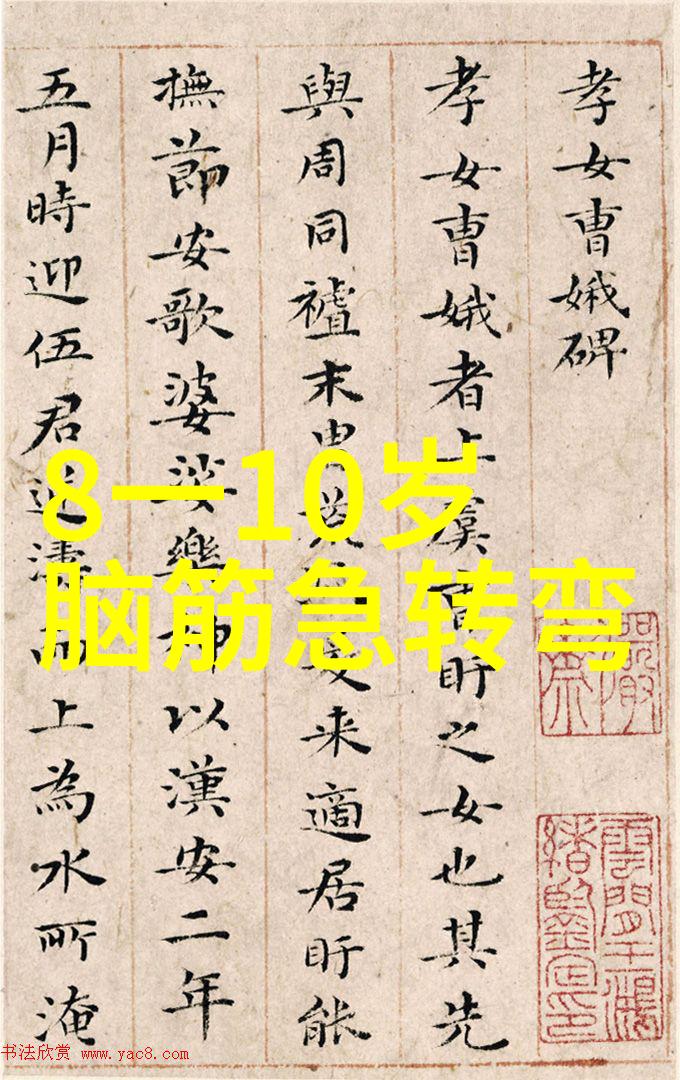 孝女曹娥碑
孝女曹娥者上虞曹盱之女也其先
與周同末冑荒爰來適居盱能
撫節安歌婆娑樂神以漢安二年
五月時迎伍君逆濤而上為水所淹
8一10岁
脑筋急转弯
雲間王鴻
緒鑒定印
书法欣赏 www.yac8.com